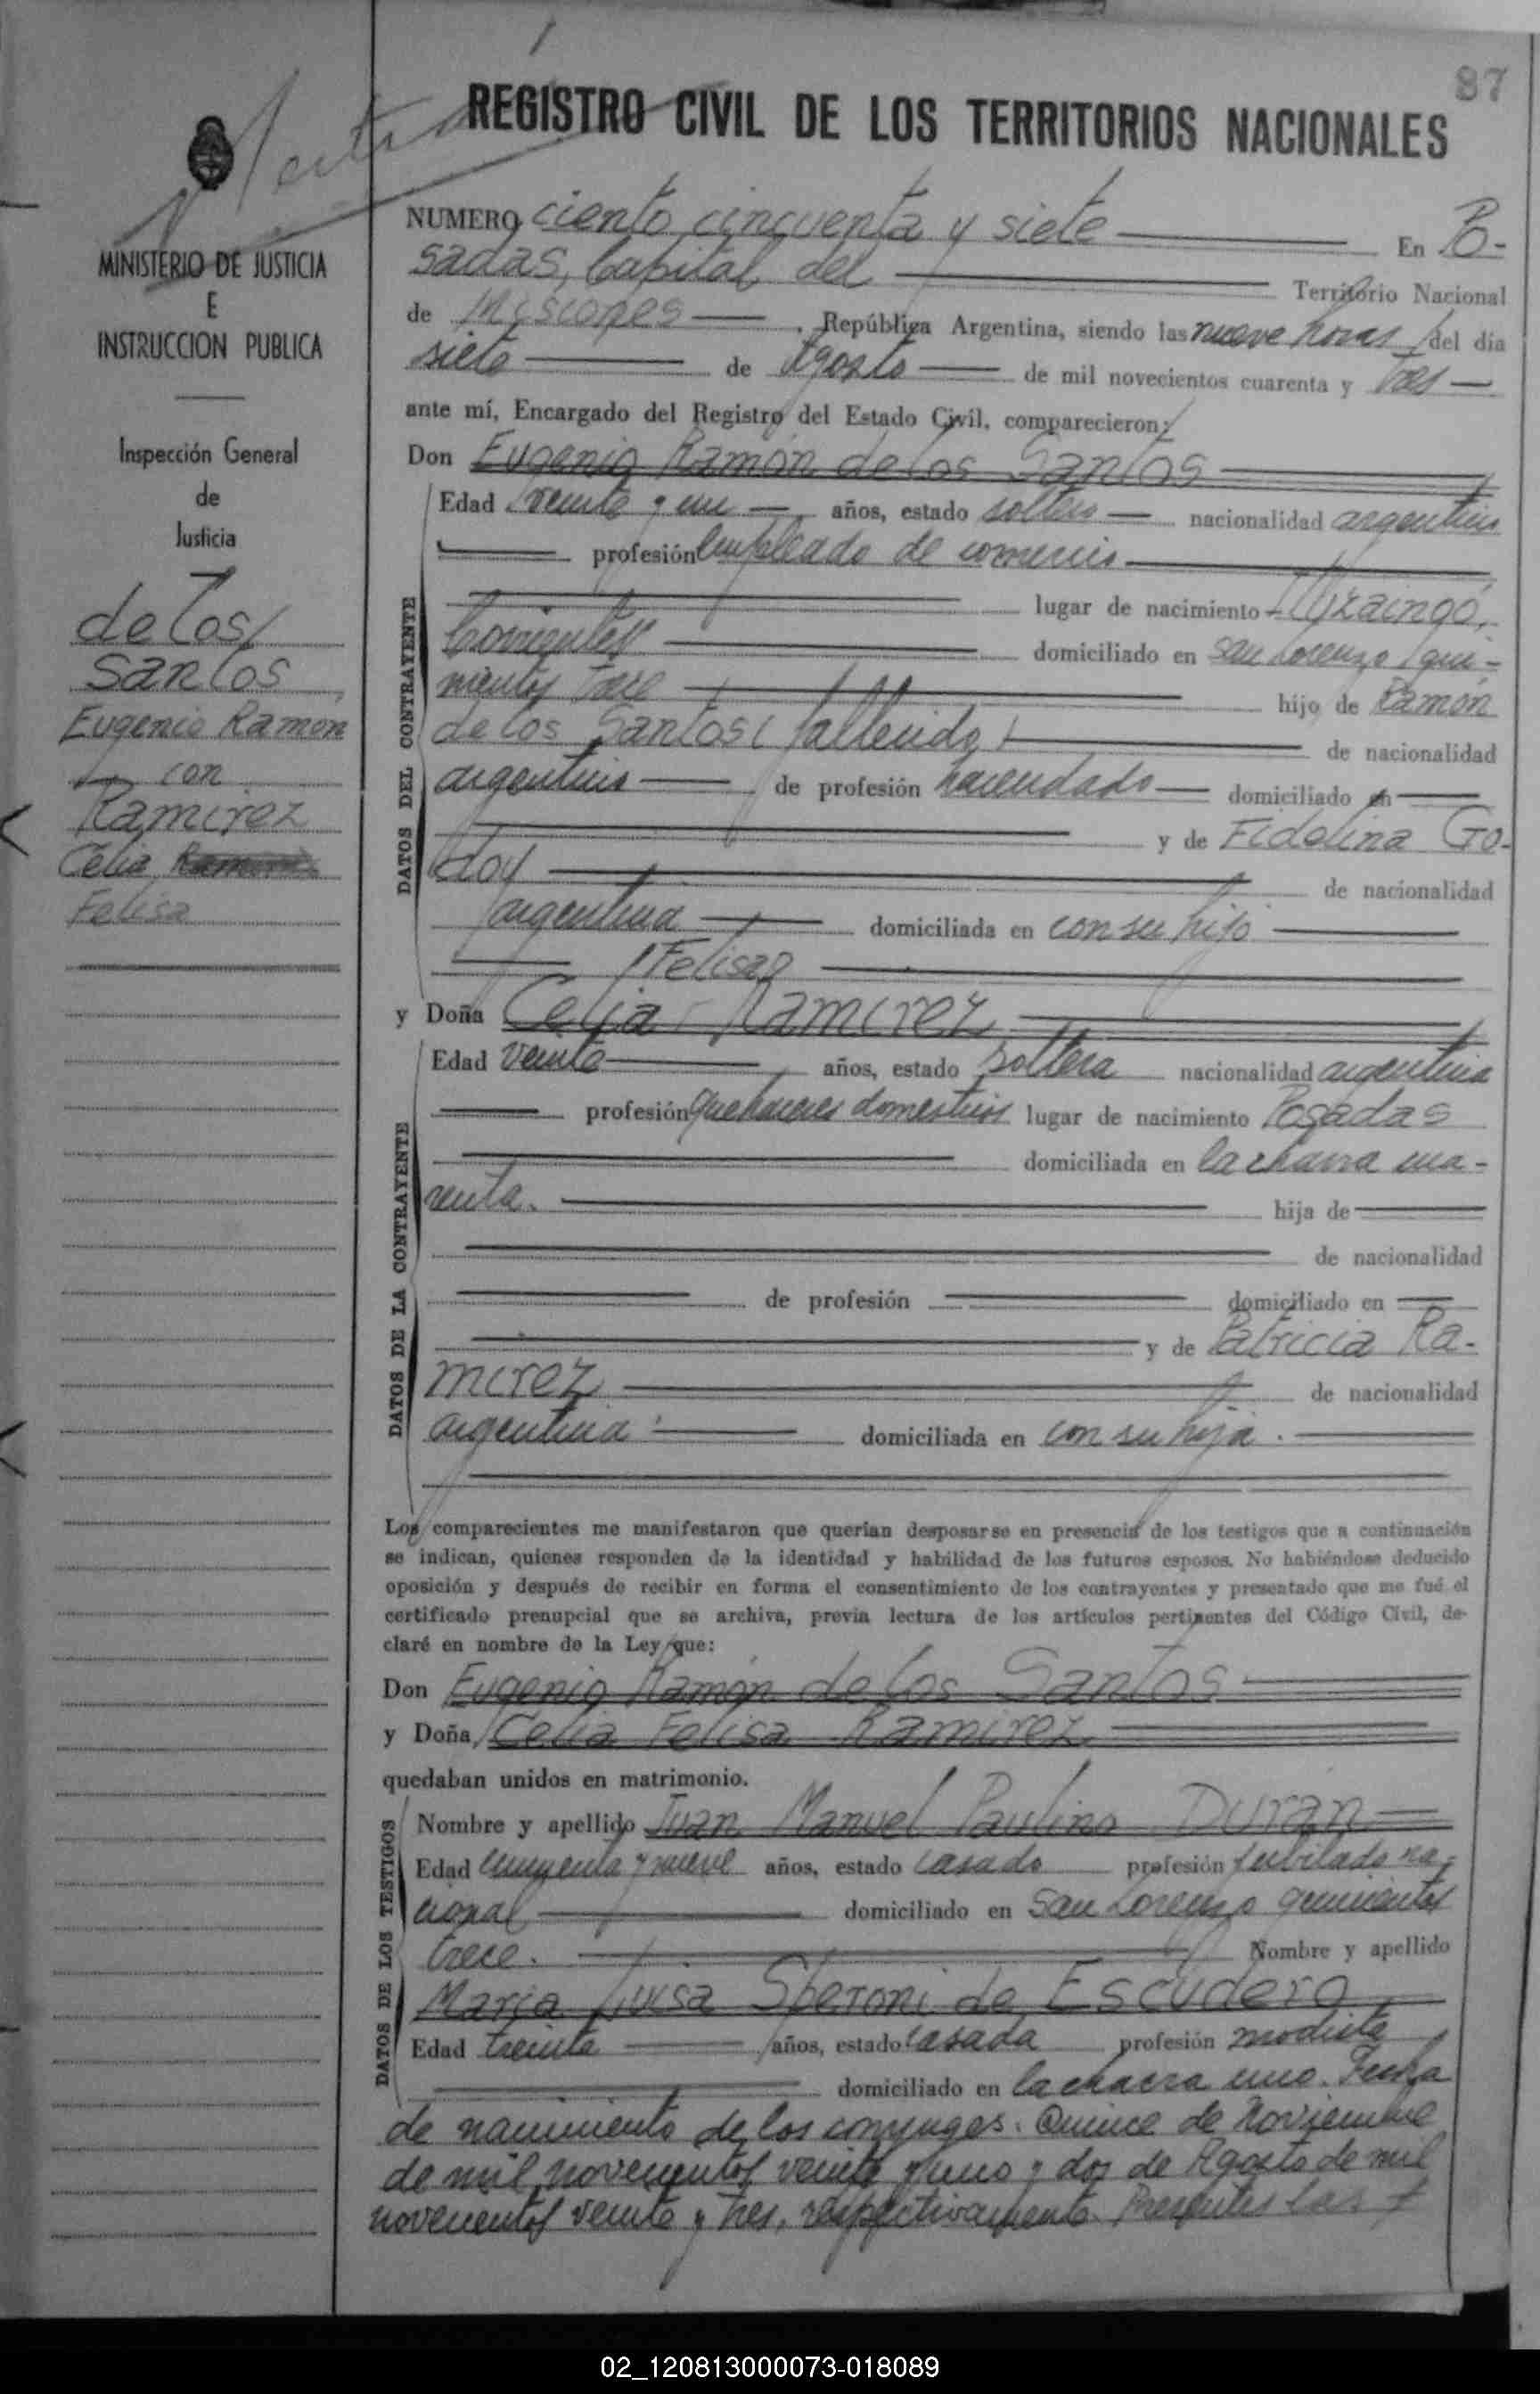 87
REGISTRO CIVIL DE LOS TERRITORIOS NACIONALES
MINISTERIO DE JUSTICIA
E
INSTRUCCION PUBLICA
Inspección General
de
Justicia
de los
Santos,
Eugenio Ramón
con
Ramirez
Celia
Felisa
NUMERO ciento cincuenta y siete En Po-
sadas, Capital del Territorio Nacional
de Misiones, República Argentina, siendo las nueve horas del día
siete de Agosto de mil novecientos cuarenta y tres
ante mí, Encargado del Registro del Estado Civil, comparecieron:
Don Eugenio Ramón de los Santos
DATOS DEL CONTRAYENTE
Edad veinte y un años, estado soltero nacionalidad argentino
profesión empleado de comercio
lugar de nacimiento Ituzaingó,
Corrientes domiciliado en San Lorenzo qui-
nientos trece hijo de Ramón
de los Santos (fallecido) de nacionalidad
argentino de profesión hacendado domiciliado en
y de Fidelina Go-
doy de nacionalidad
argentina domiciliada en con su hijo
Felisa
y Doña Celia Ramirez
DATOS DE LA CONTRAYENTE
Edad veinte años, estado soltera nacionalidad argentina
profesión quehaceres domesticos lugar de nacimiento Posadas
domiciliada en la chacra cua-
renta. hija de
de nacionalidad
de profesión domiciliado en
y de Patricia Ra-
mirez de nacionalidad
argentina domiciliada en con su hija.
Los comparecientes me manifestaron que querían desposarse en presencia de los testigos que a continuación
se indican, quienes responden de la identidad y habilidad de los futuros esposos. No habiéndose deducido
oposición y después de recibir en forma el consentimiento de los contrayentes y presentado que me fué el
certificado prenupcial que se archiva, previa lectura de los artículos pertinentes del Código Civil, de-
claré en nombre de la Ley que:
Don Eugenio Ramón de los Santos
y Doña Celia Felisa Ramirez
quedaban unidos en matrimonio.
DATOS DE LOS TESTIGOS
Nombre y apellido Juan Manuel Paulino Durán
Edad cincuenta y nueve años, estado casado profesión jubilado na-
cional domiciliado en San Lorenzo quinientos
trece. Nombre y apellido
Maria Luisa Speroni de Escudero
Edad treinta años, estado casada profesión modista
domiciliado en la chacra uno. Fecha
de nacimiento de los conyuges: Quince de Noviembre
de mil novecientos veinte y uno y dos de Agosto de mil
novecientos veinte y tres, respectivamente. Presentes las
02_120813000073-018089